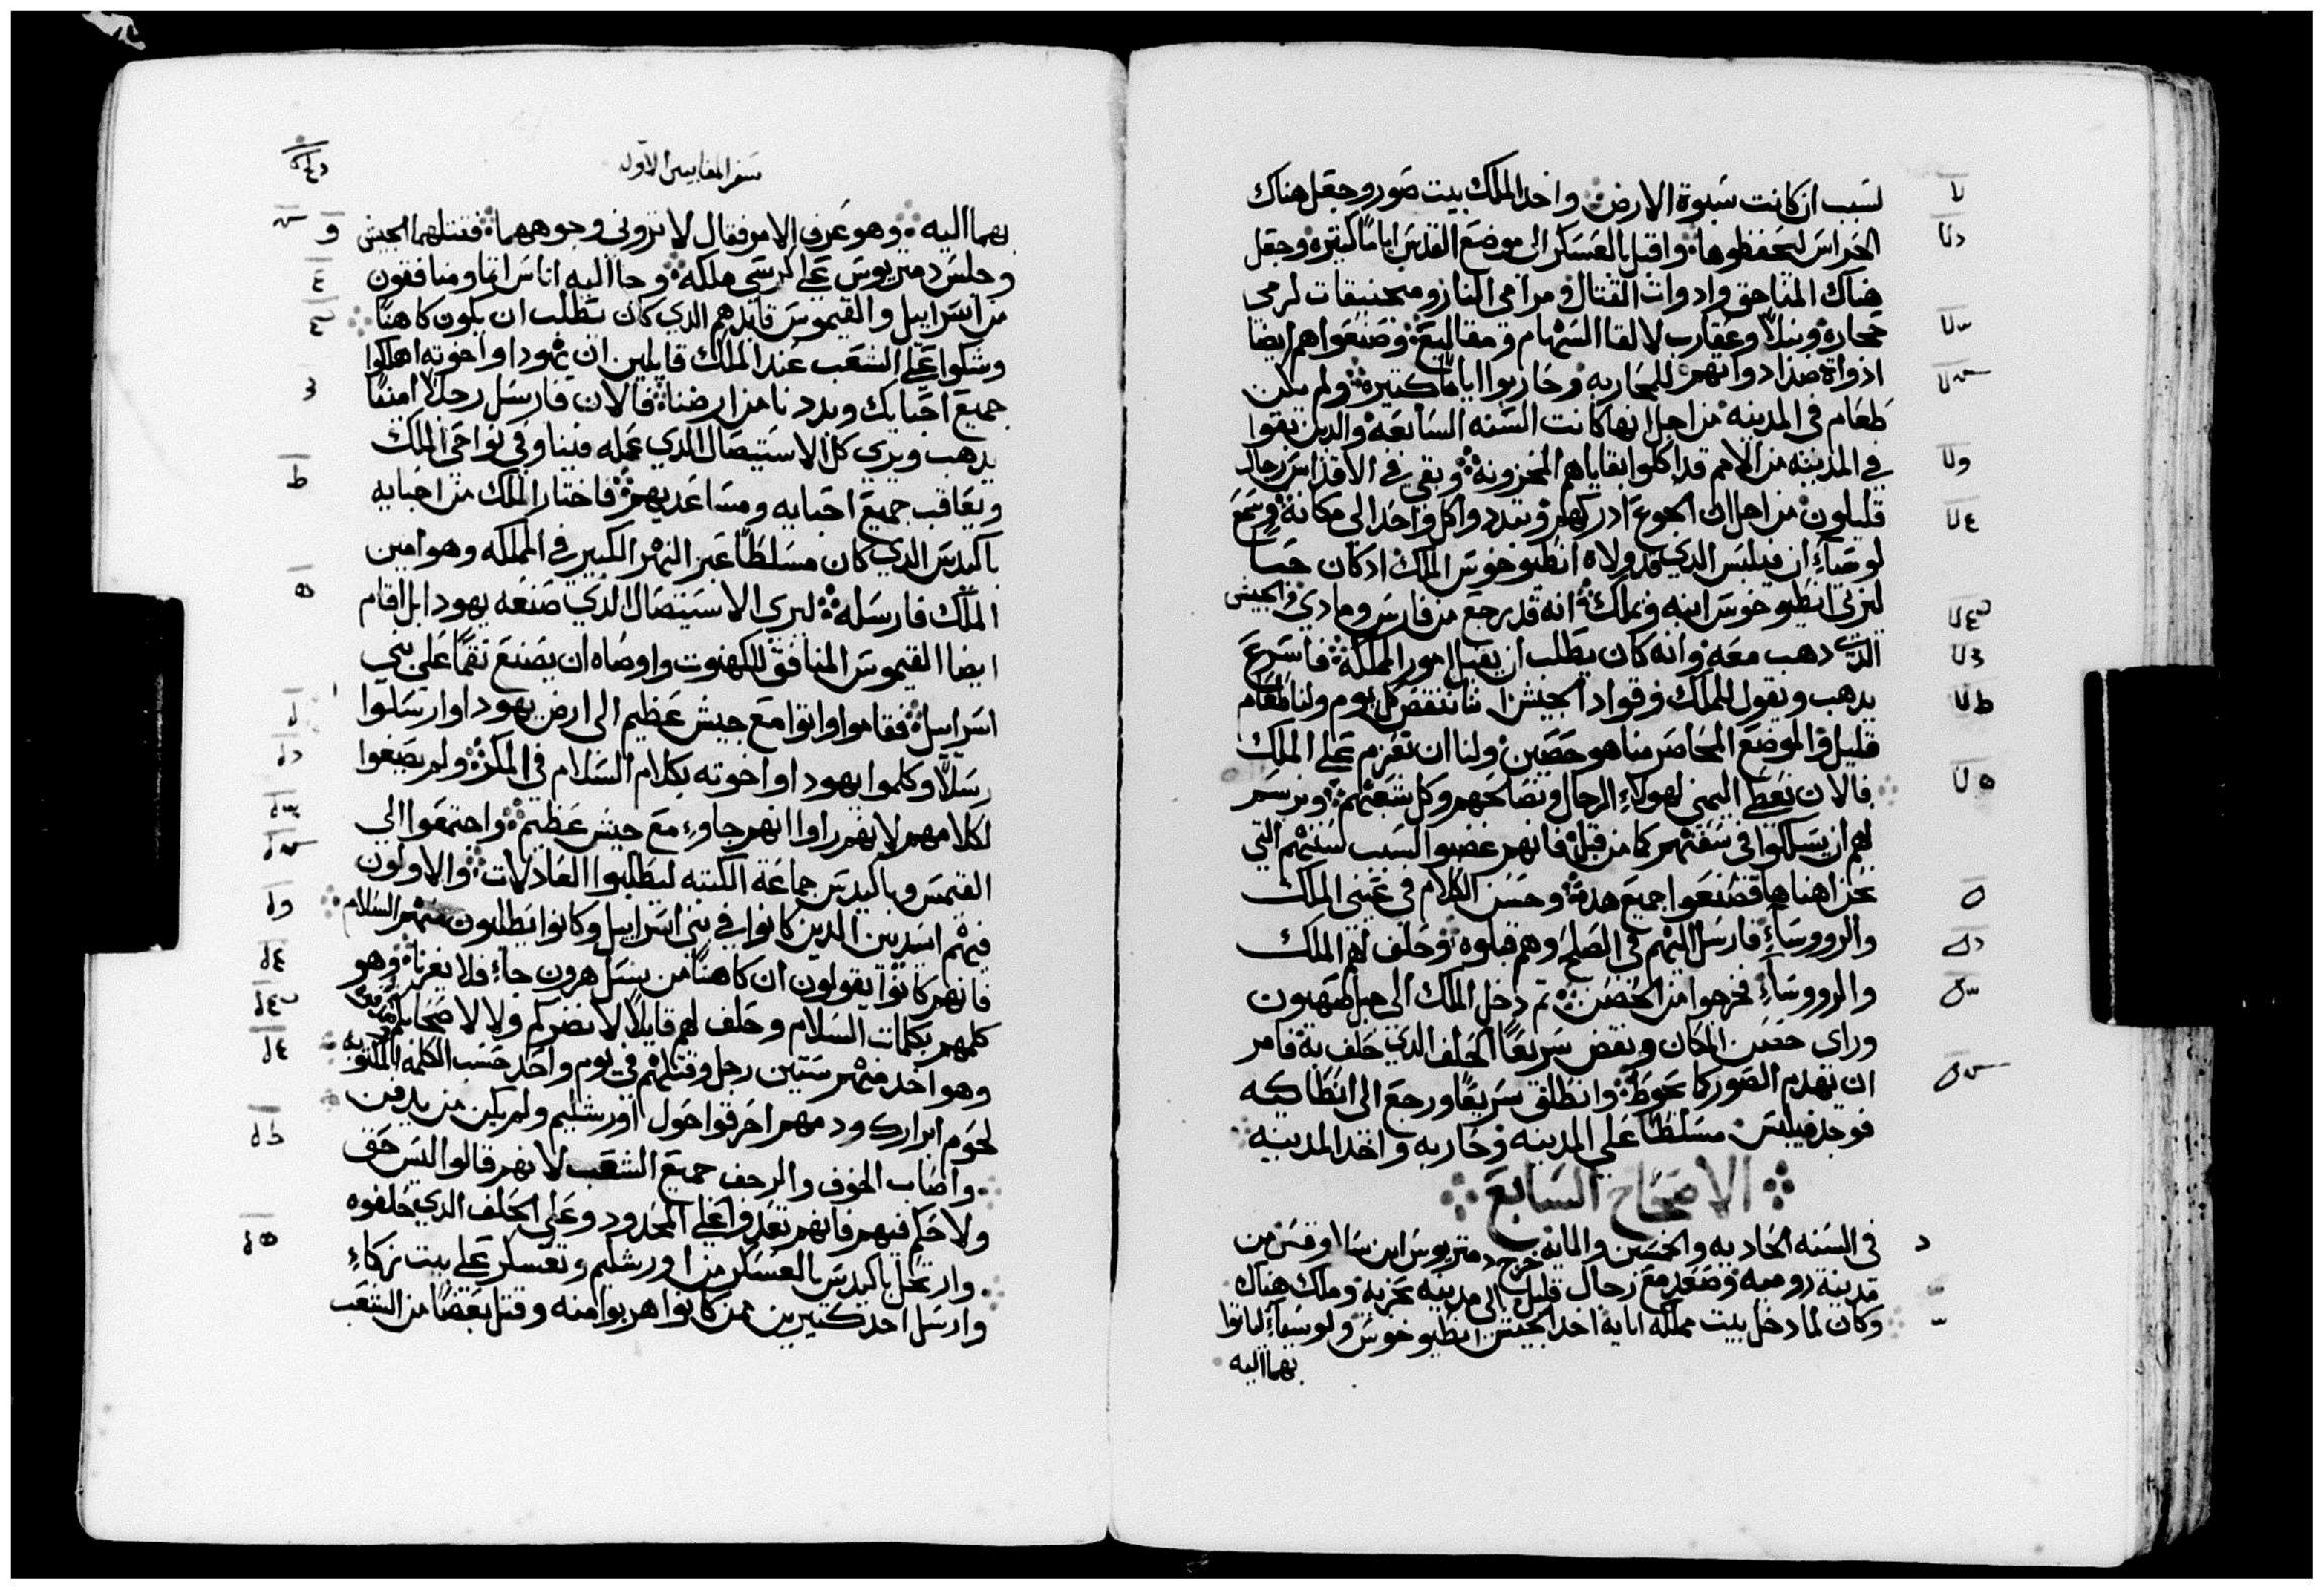 لسبب ان كانت سبوة الارض واخد الملك بيت صور وجعل هناك
الحراس ليحفظوها واقبل بالعسكر الى موضع القدس اياما كتيرة وجعل
هناك المناجق وادوات القتال ومرامي النار ومنجنيقات لرمي
حجارة ونبلا وعقارب لالقا السهام ومقاليع وصنعوا هم ايضا
ادواة ضد ادواتهم للمحاربه وحاربوا اياما كتيرة ولم يكن
طعام في المدينة من اجل انها كانت السنه السابعه والدين بقوا
في المدينه من الامم قد اكلوا بقاياهم المخزونة وبقي في الاقداس رجال
قليلون من اجل ان الجوع ادركهم وتبددوا كل واحد الى مكانه وسمع
لوسياء ان فيلبس الدي قد ولاه انطيوخوس الملك اد كان حيا
ليربي انطيوخوس ابنه ويملك انه قد رجع من فارس ومادي والجيش
الدي دهب معه وانه كان يطلب ان يقبل امور المملكة فاسرع
يدهب ويقول للملك وقواد الجيش اننا ننقص كل يوم ولنا طعام
قليل والموضع المحاصر منا هو حصين ولنا ان نعزم على الملك
فالان نعطي اليمني لهولاء الرجال ونصالحهم وكل شعبهم ونرسم
لهم ان يسلكوا في سننهم كما من قبل فانهم غضبوا لسبب سننهم التي
نحن اهناها فصنعوا جميع هدة وحسن الكلام في عيني الملك
والرووساء فارسل اليهم في الصلح وهم قبلوه وحلف لهم الملك
والرووساء فخرجوا من الحصن تم دخل الملك الى جبل صهيون
وراى حصن المكان ونقض سريعا الحلف الدي حلف به فامر
ان تهدم الصور كما يحوط وانطلق سريعا ورجع الى انطاكيه
فوجد فيلبس مسلطا على المدينه وحاربه واخد المدينه
الاصحاح السابع
في السنه الحاديه والخمسين والمايه خرج دمتريوس ابن سالوقس من
مدينة روميه وصعد مع رجال قليل الى مدينه بحرية وملك هناك
وكان لما دخل بيت مملكه ابايه اخد الجيش انطيوخوس ولوسياء لياتوا
بهما اليه
سفر المقابيين الاول
بهما اليه وهو عرف الامر فقال لا تروني وجوههما فقتلهما الجيش
وجلس دمتريوس على كرسي ملكه وجا اليه اناس اتما ومنافقون
من اسراييل والقيموس قايدهم الدي كان يطلب ان يكون كاهنا
وشكوا على الشعب عند الملك قايلين ان يهودا واخوته اهلكوا
جميع احبابك وبددنا من ارضنا فالان فارسل رجلا امينا
يدهب ويري كل الاستيصال الدي عمله فينا وفي نواحي الملك
ويعاقب جميع احبابه ومساعديهم فاختار الملك من احبابه
باكيدس الدي كان مسلطا عبر النهر الكبير في المملكه وهو امين
الملك فارسله ليرى الاستيصال الدي صنعه يهودا بل اقام
ايضا القيموس المنافق للكهنوت واوصاه ان يصنع نقما على بني
اسراييل فقاموا واتوا مع جيش عظيم الى ارض يهودا وارسلوا
رسلا وكلموا يهودا واخوته بكلام السلام في المكر ولم يصغوا
لكلامهم لانهم راوا انهم جاوء مع جيش عظيم واجتمعوا الى
القيمس وباكيدس جماعة الكتبه ليطلبوا العادلات والاولون
فيهم اسديين الدين كانوا في بني اسراييل وكانوا يطلبون منهم السلام
فانهم كانوا يقولون ان كاهنا من نسل هرون جاء فلا يغرنا وهو
كلمهم بكلمات السلام وحلف لهم قايلا لا نضركم ولا لاصحابكم
وهو اخد منهم ستين رجل وقتلهم في يوم واحد حسب الكلمه المكتوبه
لحوم ابرارك ودمهم احرقوا حول اورشليم ولم يكن من يدفن
واصاب الخوف والرجف جميع الشعب لانهم قالوا ليس حق
ولا حكم فيهم فانهم تعدوا على المحدود وعلى الحلف الدي حلفوه
وارتحل باكيدس بالعسكر من اورشليم وتعسكر على بيت زكاء
وارسل اخد كتيرين ممن كانوا هربوا منه وقتل بعضا من الشعب